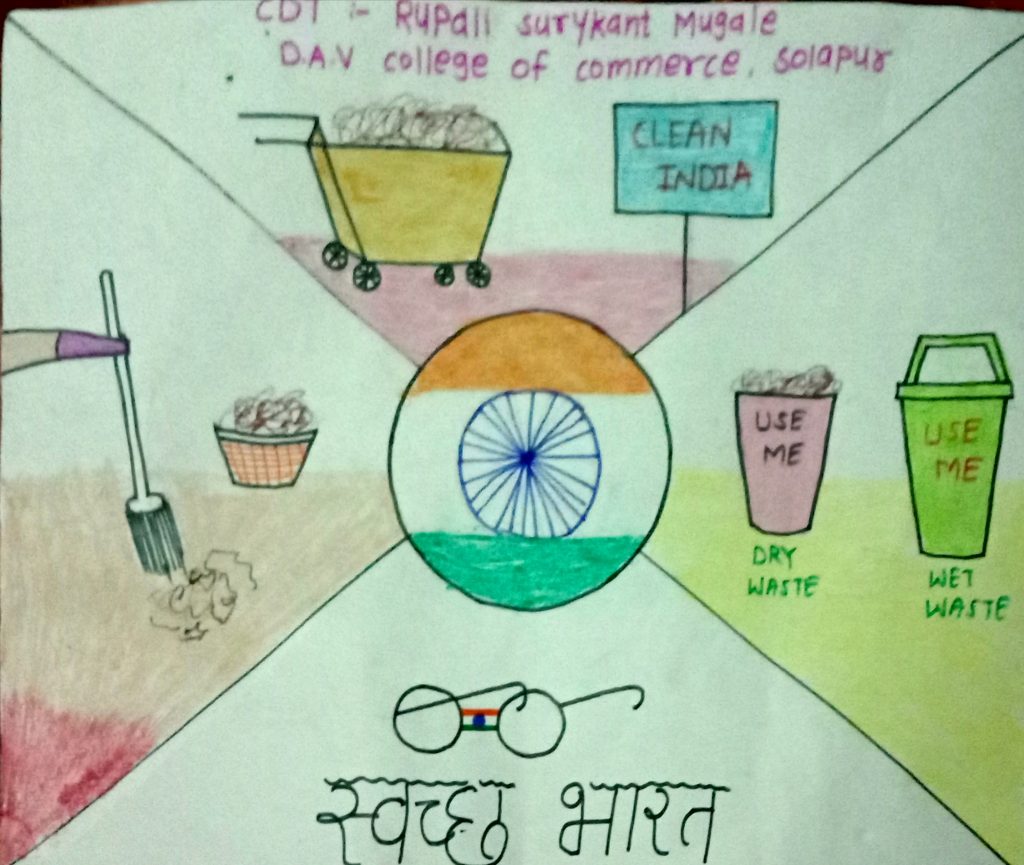 CDT :- Rupali surykant Mugale
D.A.V college of commerce, solapur
CLEAN
INDIA
USE
ME
DRY
WASTE
USE
ME
WET
WASTE
स्वच्छ भारत